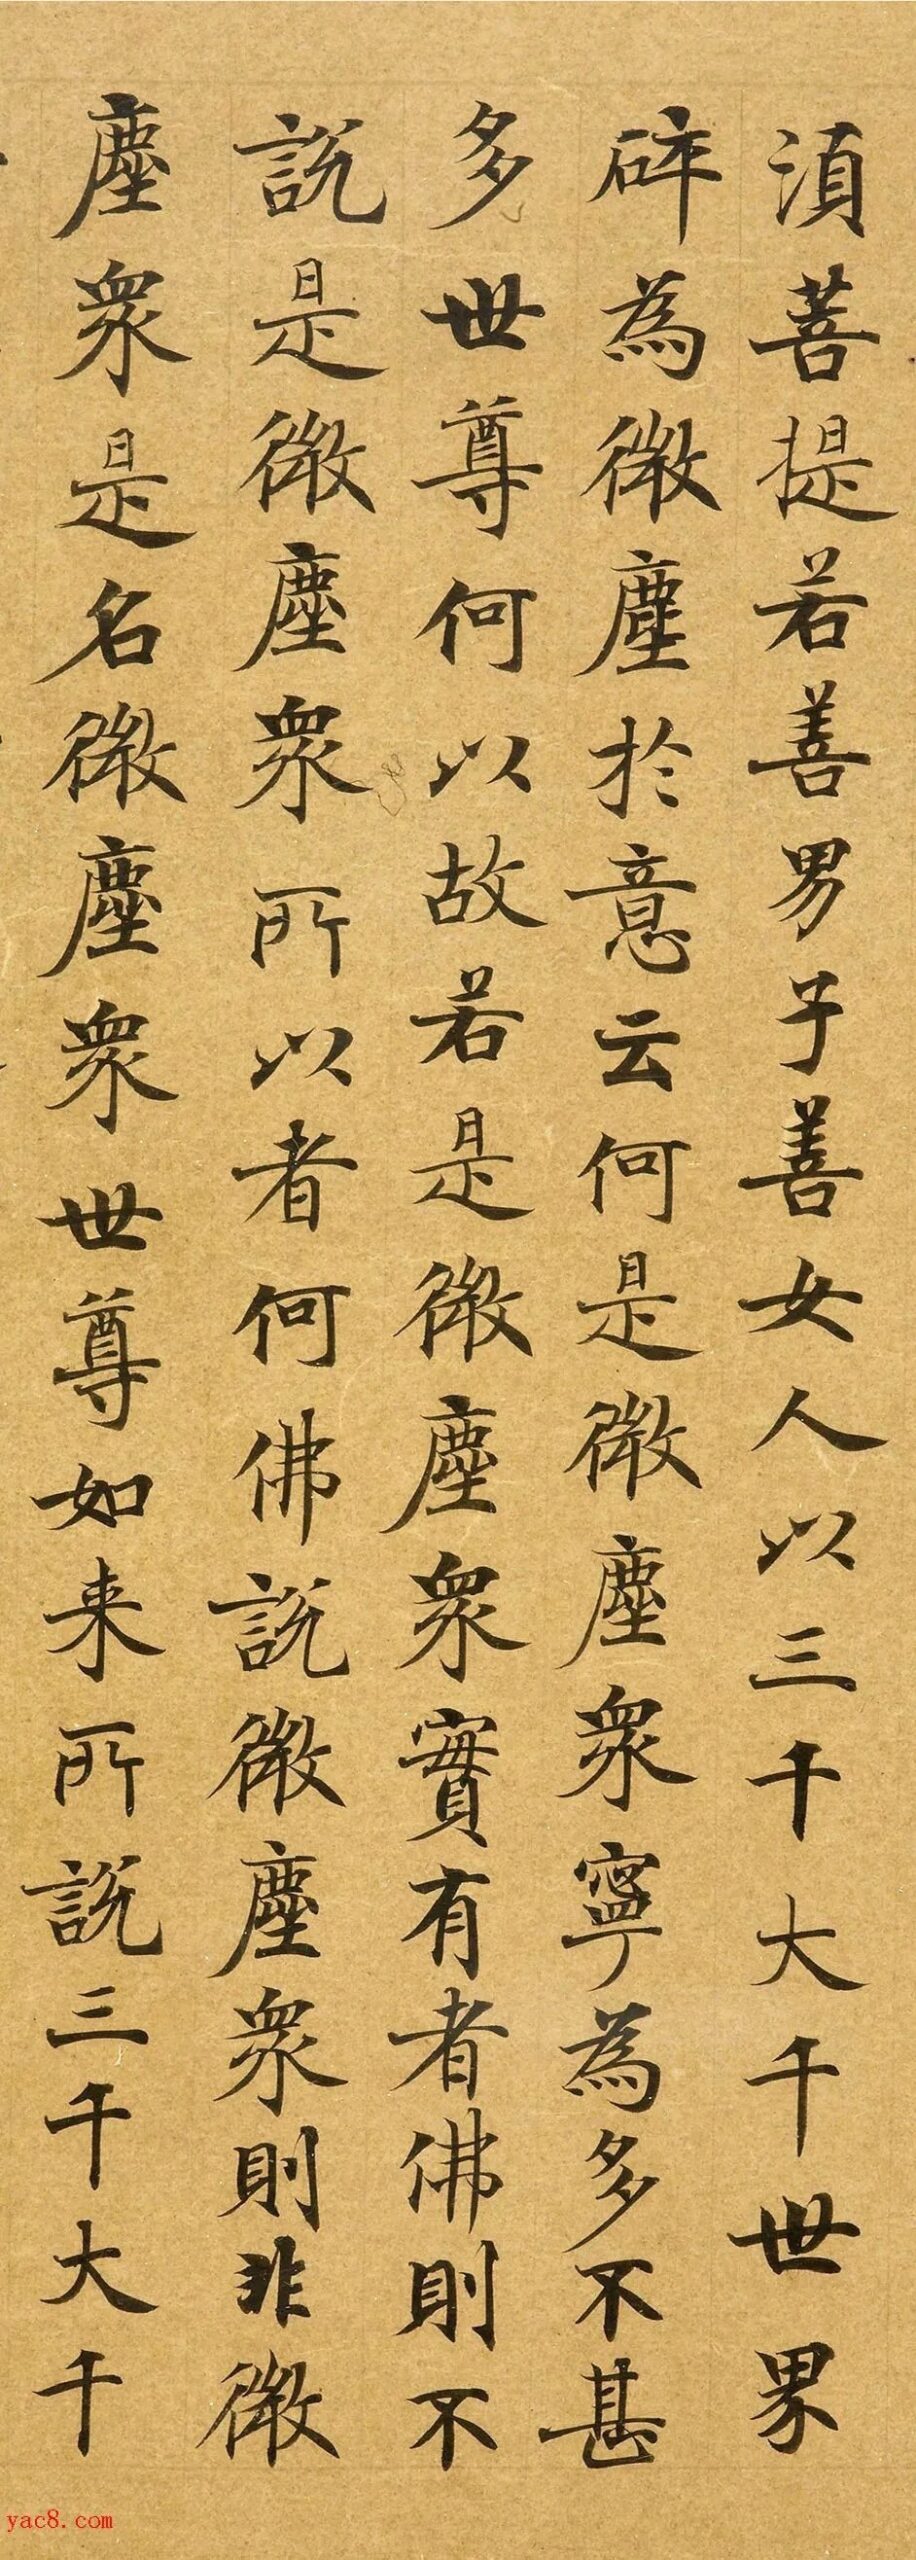 湏菩提若善男子善女人以三千大千世界
碎為微塵於意云何是微塵衆寧為多不甚
多世尊何以故若是微塵衆實有者佛則不
説是微塵衆所以者何佛説微塵衆則非微
塵衆是名微塵衆世尊如来所説三千大千
yac8.com